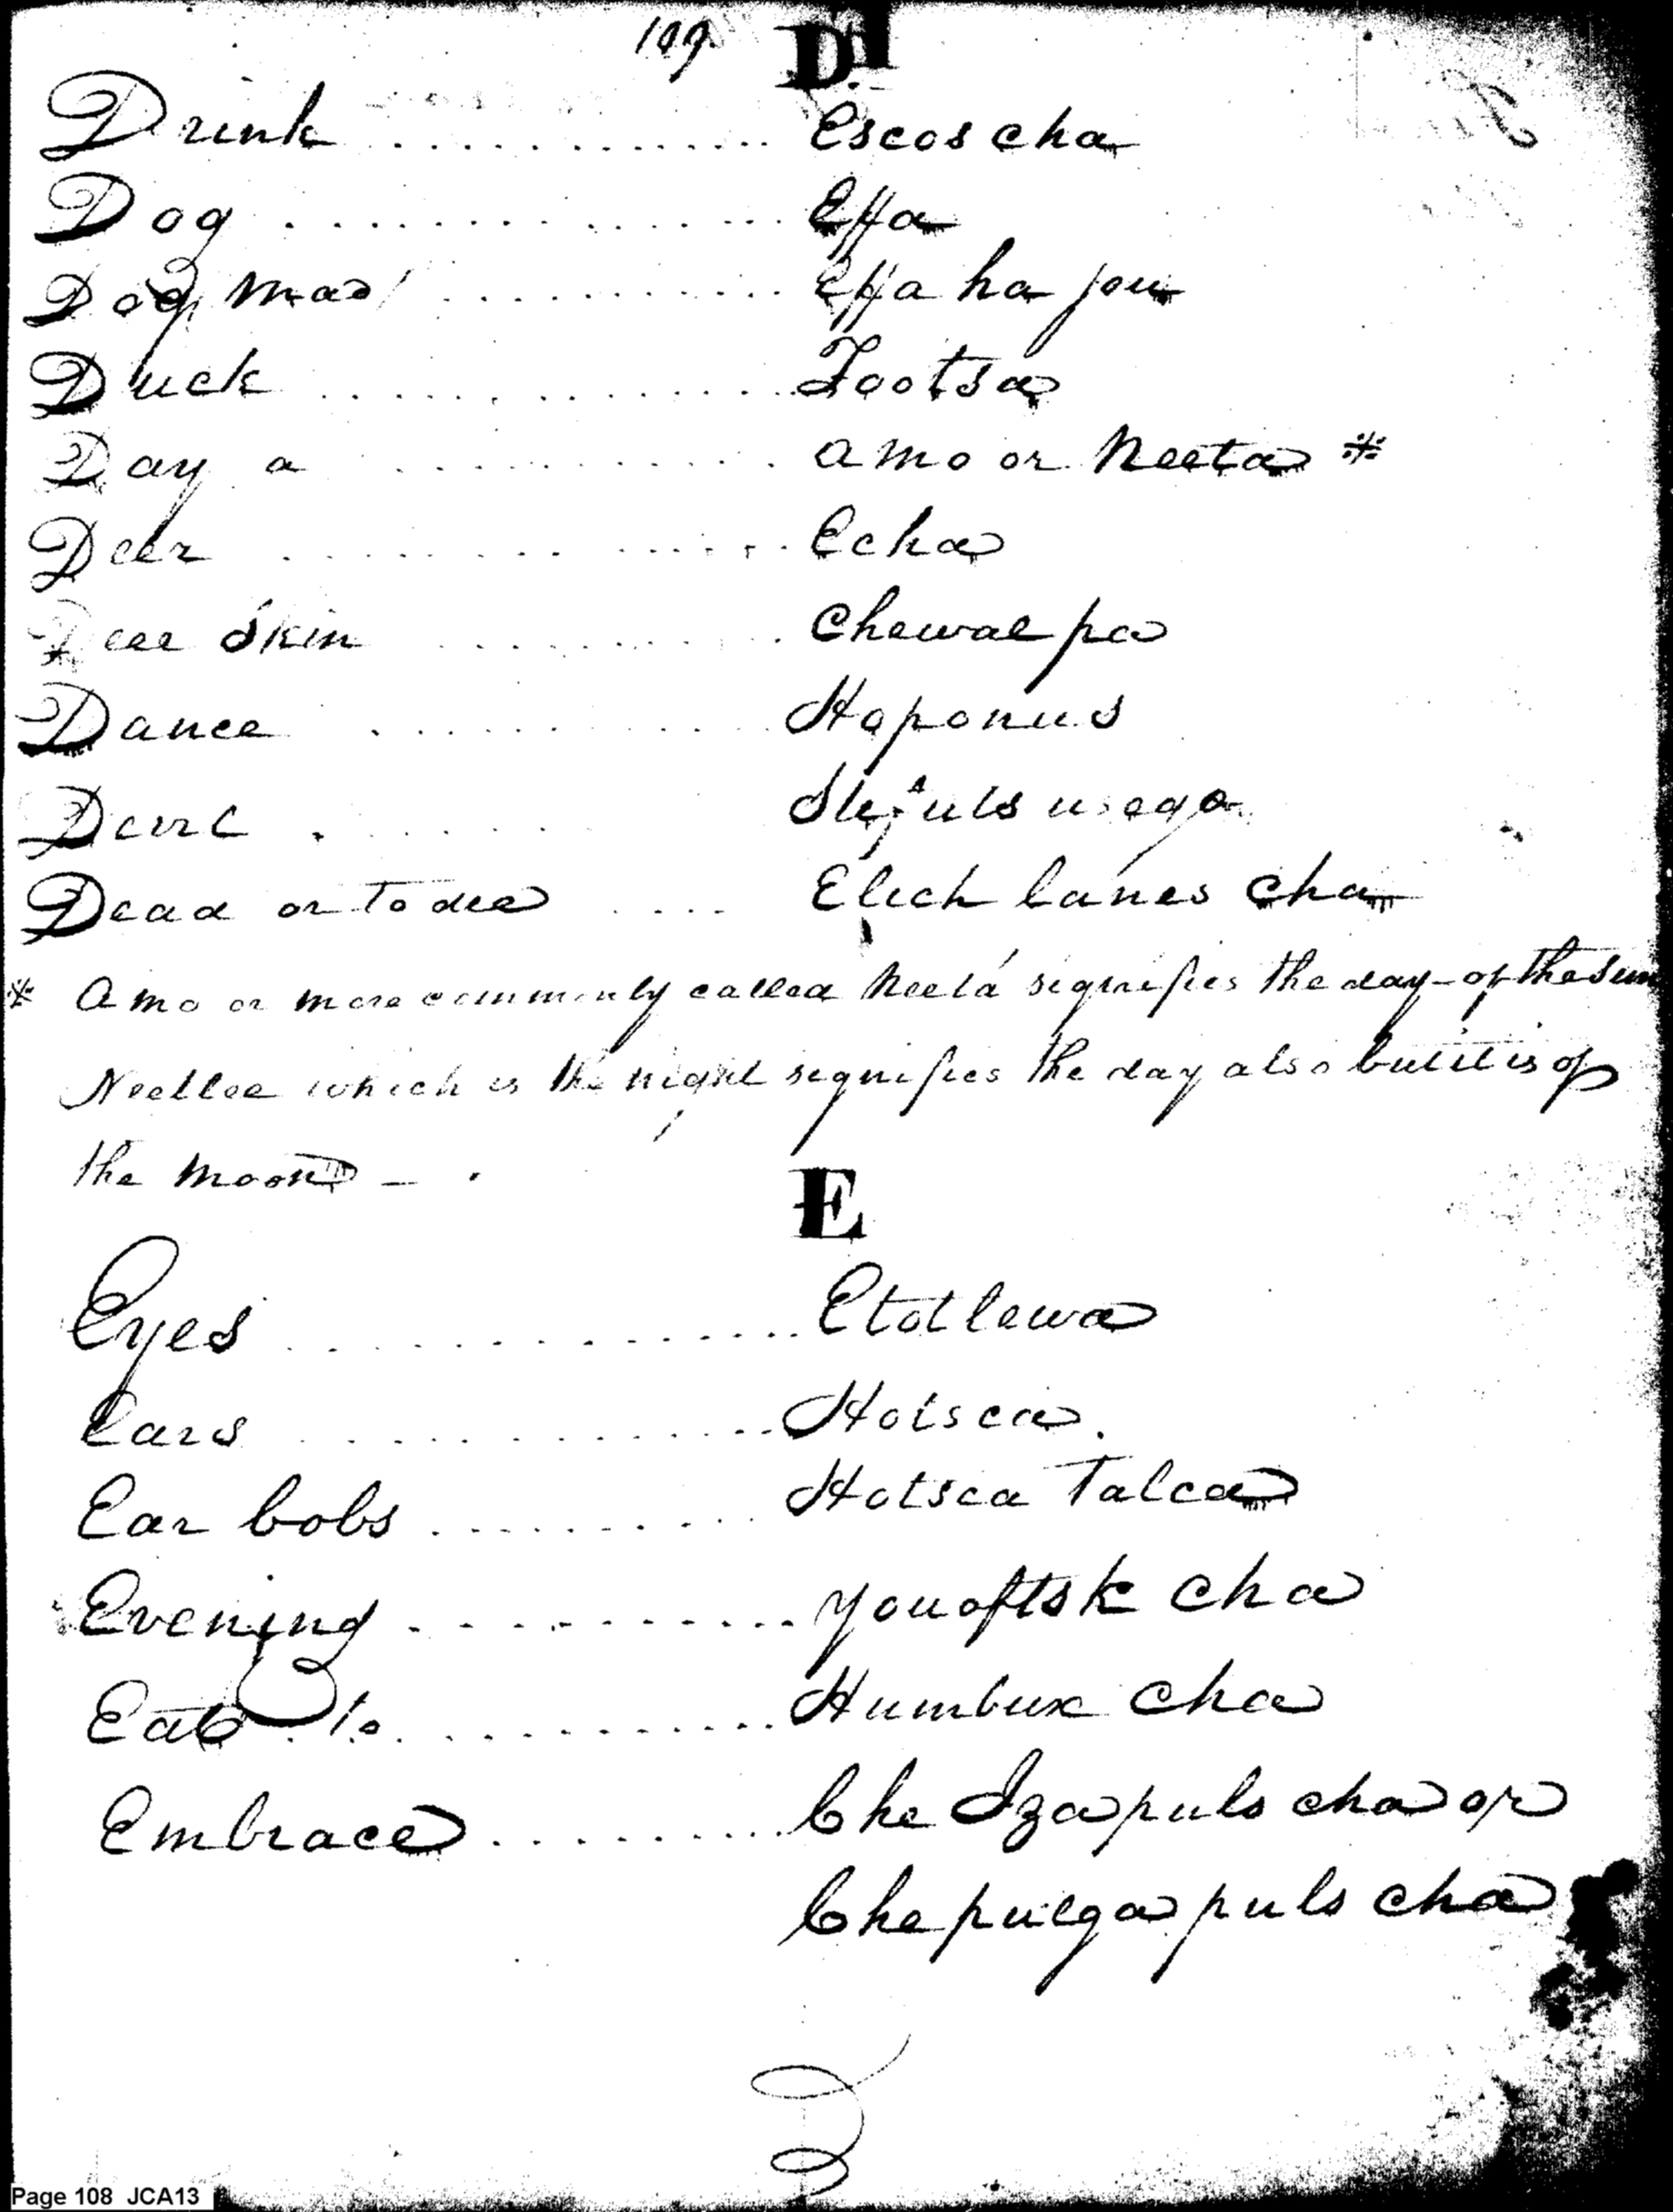 109. D
Drink ............ Escos cha
Dog ............. Effa
Dog mad ........... Effa ha jou
Duck ............. Footsa
Day a ........... amo or Neeta *
Deer ............. Echa
Deer Skin ......... Chewal pa
Dance ........... Hoponus
Devil .......
Dead or to die .... Elich lanes cha
* Amo or more commonly called Neeta signifies the day - of the sun
Neetlee which is the night signifies the day also but it is of
the moon - .
E
Eyes ............ Etotlewa
Ears ............ Hotsca.
Ear bobs .......... Hotsca Talca
Evening .......... Youoftsk cha
Eat to ........... Humbux cha
Embrace ......... Che Izapuls cha or
Chepulgapuls cha
Page 108 JCA13